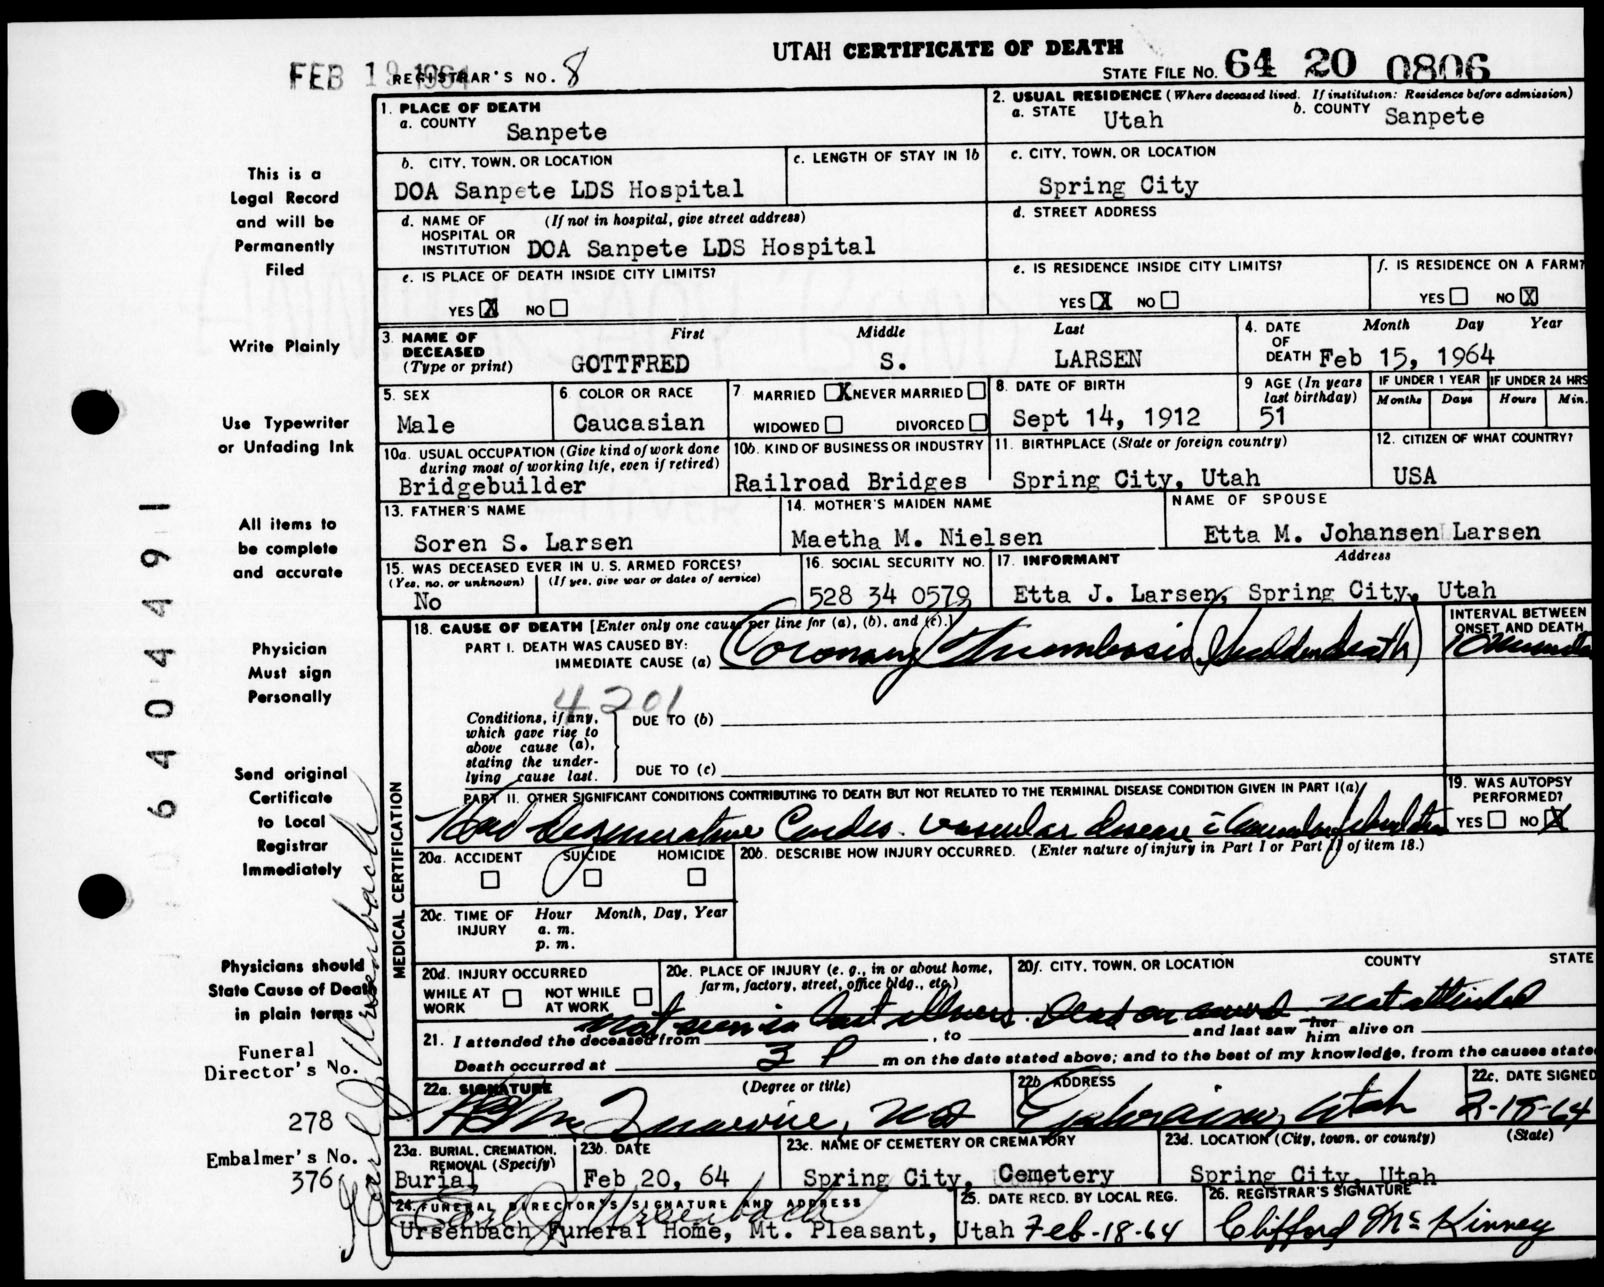 UTAH CERTIFICATE OF DEATH
FEB 19 1964 REGISTRAR'S NO. 8
STATE FILE NO. 64 20 0806
1. PLACE OF DEATH
a. COUNTY Sanpete
2. USUAL RESIDENCE (Where deceased lived. If institution: Residence before admission)
a. STATE Utah b. COUNTY Sanpete
b. CITY, TOWN, OR LOCATION
DOA Sanpete LDS Hospital
c. LENGTH OF STAY IN 1b
c. CITY, TOWN, OR LOCATION
Spring City
d. NAME OF HOSPITAL OR INSTITUTION (If not in hospital, give street address)
DOA Sanpete LDS Hospital
d. STREET ADDRESS
e. IS PLACE OF DEATH INSIDE CITY LIMITS?
YES X NO
e. IS RESIDENCE INSIDE CITY LIMITS?
YES X NO
f. IS RESIDENCE ON A FARM?
YES NO X
3. NAME OF DECEASED (Type or print) First Middle Last
GOTTFRED S. LARSEN
4. DATE OF DEATH Month Day Year
Feb 15, 1964
5. SEX
Male
6. COLOR OR RACE
Caucasian
7. MARRIED X NEVER MARRIED
WIDOWED DIVORCED
8. DATE OF BIRTH
Sept 14, 1912
9 AGE (In years last birthday)
51
IF UNDER 1 YEAR IF UNDER 24 HRS
Months Days Hours Min.
10a. USUAL OCCUPATION (Give kind of work done during most of working life, even if retired)
Bridgebuilder
10b. KIND OF BUSINESS OR INDUSTRY
Railroad Bridges
11. BIRTHPLACE (State or foreign country)
Spring City, Utah
12. CITIZEN OF WHAT COUNTRY?
USA
13. FATHER'S NAME
Soren S. Larsen
14. MOTHER'S MAIDEN NAME
Maetha M. Nielsen
NAME OF SPOUSE
Etta M. Johansen Larsen
15. WAS DECEASED EVER IN U. S. ARMED FORCES?
(Yes, no, or unknown) (If yes, give war or dates of service)
No
16. SOCIAL SECURITY NO.
528 34 0579
17. INFORMANT Address
Etta J. Larsen, Spring City, Utah
MEDICAL CERTIFICATION
18. CAUSE OF DEATH [Enter only one cause per line for (a), (b), and (c).]
INTERVAL BETWEEN ONSET AND DEATH
PART I. DEATH WAS CAUSED BY:
IMMEDIATE CAUSE (a) Coronary Thrombosis (Sudden death)
4201
Conditions, if any, which gave rise to above cause (a), stating the underlying cause last.
DUE TO (b)
DUE TO (c)
PART II. OTHER SIGNIFICANT CONDITIONS CONTRIBUTING TO DEATH BUT NOT RELATED TO THE TERMINAL DISEASE CONDITION GIVEN IN PART I(a)
Had degenerative Cardio. vascular disease
19. WAS AUTOPSY PERFORMED?
YES NO X
20a. ACCIDENT SUICIDE HOMICIDE
20b. DESCRIBE HOW INJURY OCCURRED. (Enter nature of injury in Part I or Part II of item 18.)
20c. TIME OF INJURY Hour Month, Day, Year
a. m.
p. m.
20d. INJURY OCCURRED
WHILE AT WORK NOT WHILE AT WORK
20e. PLACE OF INJURY (e. g., in or about home, farm, factory, street, office bldg., etc.)
20f. CITY, TOWN, OR LOCATION COUNTY STATE
not seen in last illness. Dead on arrival not attended
21. I attended the deceased from , to and last saw her him alive on
Death occurred at 3 P m on the date stated above; and to the best of my knowledge, from the causes state
22a. SIGNATURE (Degree or title)
22b ADDRESS
Ephraim, Utah
22c. DATE SIGNED
2-18-64
23a. BURIAL, CREMATION, REMOVAL (Specify)
Burial
23b. DATE
Feb 20, 64
23c. NAME OF CEMETERY OR CREMATORY
Spring City, Cemetery
23d. LOCATION (City, town, or county) (State)
Spring City, Utah
24. FUNERAL DIRECTOR'S SIGNATURE AND ADDRESS
Earl J Ursenbach
Ursenbach Funeral Home, Mt. Pleasant, Utah
25. DATE RECD. BY LOCAL REG.
Feb-18-64
26. REGISTRAR'S SIGNATURE
Clifford McKinney
This is a
Legal Record
and will be
Permanently
Filed
Write Plainly
Use Typewriter
or Unfading Ink
All items to
be complete
and accurate
Physician
Must sign
Personally
Send original
Certificate
to Local
Registrar
Immediately
Physicians should
State Cause of Death
in plain terms
Funeral
Director's No.
278
Embalmer's No.
376
Earl J Ursenbach
6404491